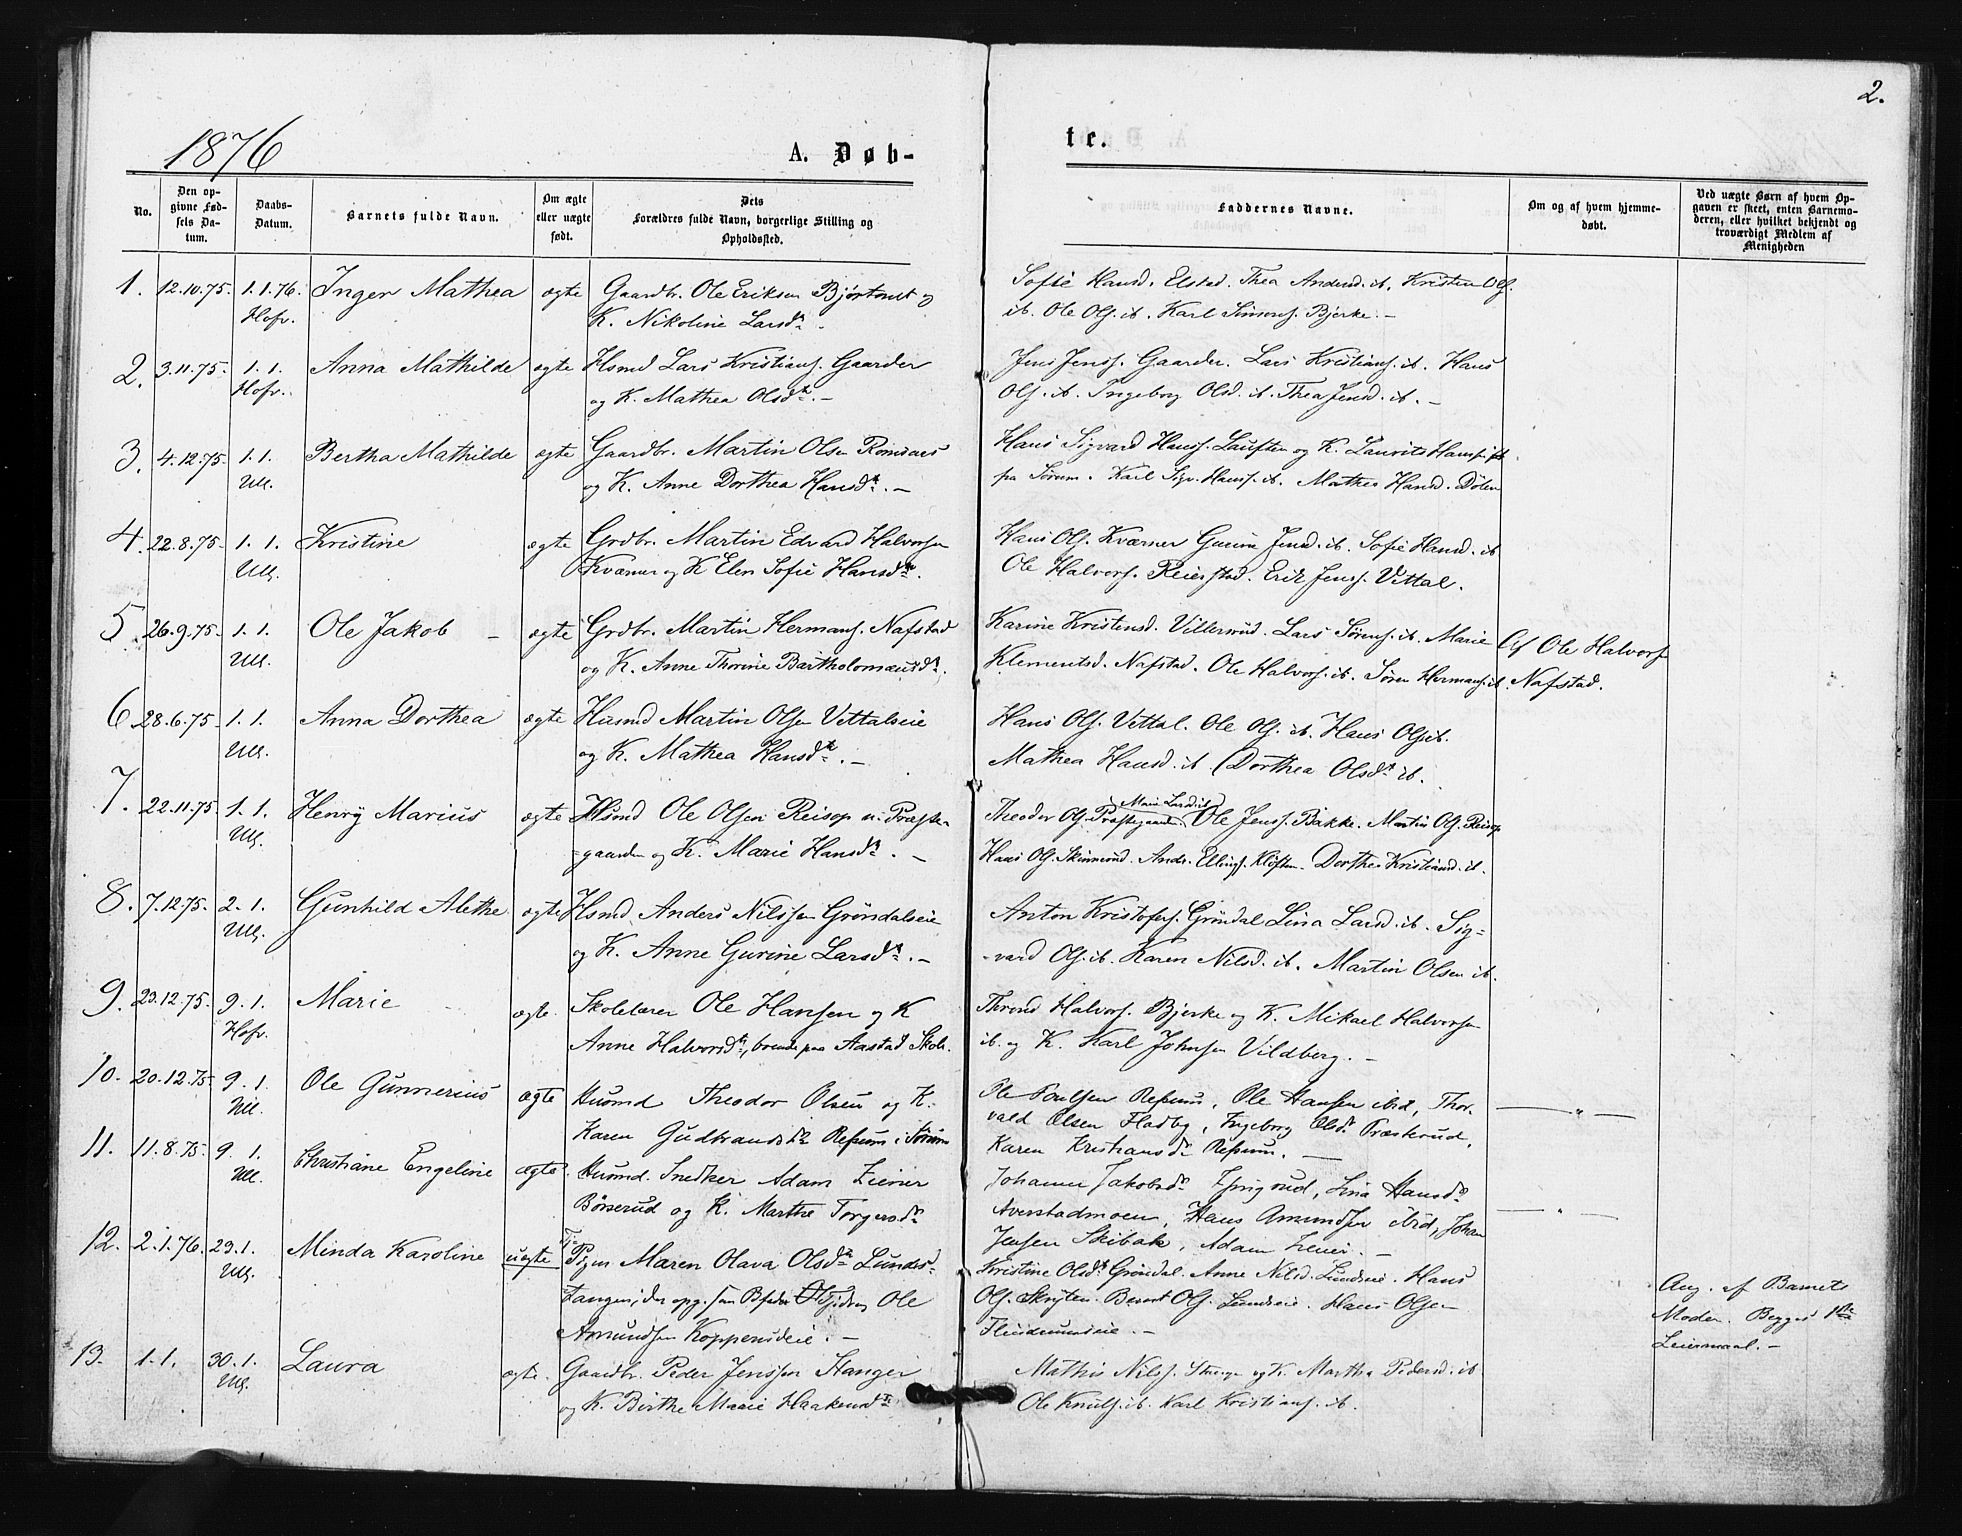 2.
1876
A. Døb-
te.
No.
Den op-
givne Fød-
sels Da-
tum.
Daabs-
Datum.
Barnets fulde Navn.
Om ægte
eller uægte
født.
Dets
Forældres fulde Navn, borgerlige Stilling og
Opholdssted.
Faddernes Navne.
Om og af hvem hjemme-
døbt.
Ved uægte Børn af hvem Op-
gaven er skeet, enten Barnemo-
deren, eller hvilket bekjendt og
troværdigt Medlem af
Menigheden
1. 12.10.75. 1.1.76. Inger Mathea ægte Gaardbr. Ole Eriksen og
Hofv. K. Nikoline Larsdtr.
Sofie Hansd. Elstad. Thea Andersd. ib. Kristen Ols.
ib. Ole Ols. ib. Karl Simens. Bjerke. –
2. 3.11.75. 1.1. Anna Mathilde ægte Hsmd Lars Kristians. Gaarder
Hofv. og K. Mathea Olsdtr. –
Jens Jenss. Gaarder. Lars Kristians. ib. Hans
Ols. ib. Ingeborg Olsd. ib. Thea Jensd. ib. –
3. 4.12.75. 1.1. Bertha Mathilde ægte Gaardbr. Martin Olsen
Ull. og K. Anne Dorthea Hansdtr. –
Hans Sigvard Hanss. og K. Laurits Hanss.
pa Sørum. Karl Sigv. Hanss. ib. Mathea Hansd. Dølen
4. 22.8.75. 1.1. Kristine ægte Grdbr. Martin Edvard Halvorsen
Ull. Kværner og K Elen Sofie Hansdtr.
Hans Ols. Kværner Gurine Jensd. ib. Sofie Hansd. ib
Ole Halvors. Reierstad. Erik Jenss. Vettal.
5. 26.9.75. 1.1. Ole Jakob – ægte Grdbr. Martin Hermans. Nafstad
Ull. og K. Anne Thorine Bartholomæusdtr.
Karine Kristensd. Villerud. Lars Sørens. ib. Marie
Klementsd. Nafstad. Ole Halvors. ib. Søren Hermans. ib.
Af Ole Halvors
Nafstad.
6. 28.6.75. 1.1. Anna Dorthea ægte Husmd Martin Olsen Vettalseie
Ull. og K. Mathea Hansdtr. –
Hans Ols. Vettal. Ole Ols. ib. Hans Ols ib.
Mathea Hansd. ib. Dorthea Olsdtr ib.
7. 22.11.75. 1.1. Henry Marius ægte Hsmd Ole Olsen Reisop u. Præste-
Ull. gaarden og K. Marie Hansdtr. –
Marie Larsd. ib
Theodor Ols. Præstegaarden. Ole Jenss. Bakke. Martin Ols. Reisop
Hans Ols. Skinnerud. Andr. Ellings. Kløften. Dorthea Kristiansd. ib.
8. 7.12.75. 2.1. Gunhild Alethe ægte Hsmd Anders Nilssen Grøndalseie
Ull. og K. Anne Gurine Larsdtr. –
Anton Kristofers. Grøndal Lina Larsd. ib. Sig-
-vard Ols. ib. Karen Nilsd. ib. Martin Olsen ib.
9. 23.12.75. 9.1. Marie ægte. Skolelærer Ole Hansen og K
Hofv. Anne Halvorsdtr, boende paa Aastad Skole.
Thrond Halvors. Bjerke og K. Mikael Halvorsen
ib. og K. Karl Johnsen Vildberg. –
10. 20.12.75 9.1. Ole Gunnerius ægte Husmd Theodor Olsen og K.
Ull. Karen Gudbrandsdr i Sørum
Ole Paulsen, Ole Hansen ibid, Thor-
vald Olsen Fladby, Ingeborg Olsdr. Præsterud,
Karen Kristiansdr. –
11. 11.8.75. 9.1. Christiane Engeline ægte. Husmd. Snedker Adam Zeiner
Ull. Børserud og K. Marthe Torgersdr
Johanne Jakobsdr, Lina Hansdr
Averstadmoen, Hans Amundsen ibid, Johan
Jensen Skibak, Adam Zeiner. –
12. 2.1.76. 23.1. Minda Karoline uægte Pigen Maren Olava Olsdr Lunds-
Ull. tangen; den opg. som Bfader Ole
Amundsen Koppereideie. –
Kristine Olsdr Grøndal. Anne Nilsd. Lundseie. Hans
Ols. Skrysten. Bernt Ols. Lundseie. Hans Olsen
Ang. af Barnets
Moder. Begges 1ste
Leiermaal. –
13. 1.1. 30.1. Laura ægte. Gaardbr. Peder Jenssen Hanger
Ull. og K. Birthe Marie Haakensdtr
Mathis Nilss. og K. Martha Pedersd. ib
Ole Knuts. ib. Karl Kristians. ib.